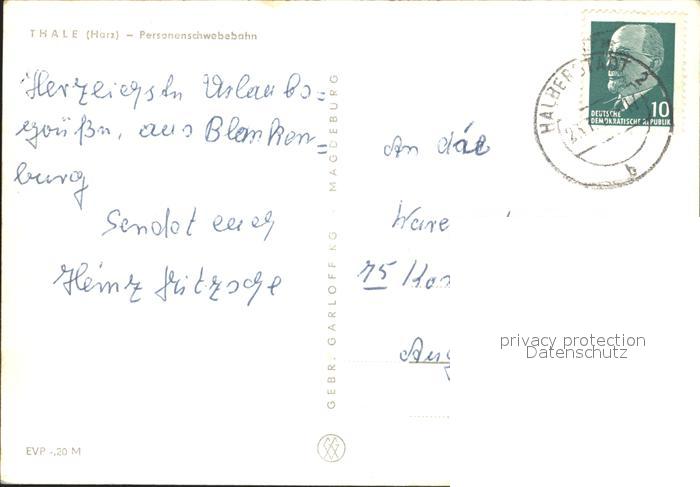 THALE (Harz) – Personenschwebebahn
Herzlichste Urlaubs=
grüße, aus Blanken=
burg
Sendet euch
Heinz Fritzsche
GEBR. GARLOFF KG · MAGDEBURG
EVP -,20 M
HALBERSTADT 2
b
10
DEUTSCHE
DEMOKRATISCHE REPUBLIK
An die
Ware
75
privacy protection
Datenschutz